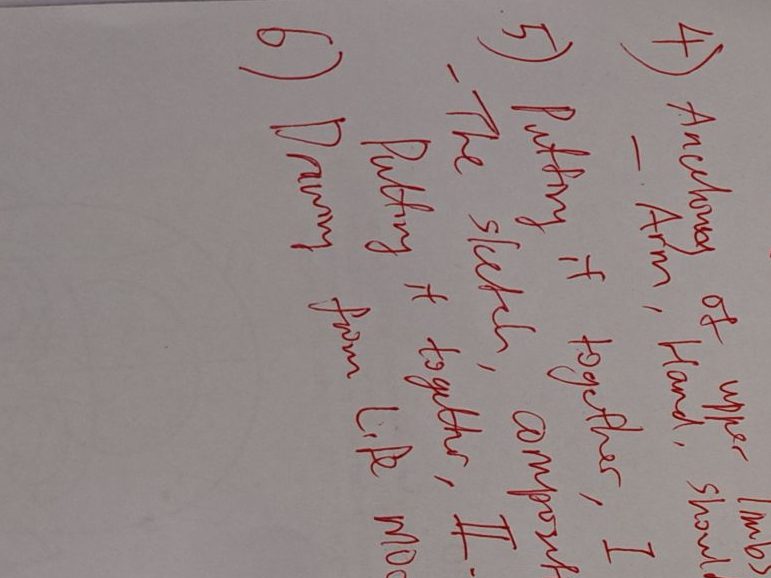 4) Anatomy of upper limbs
- Arm, Hand, should
5) Putting it together, I
- The sketch, composit
Putting it together, II.
6) Drawing from Life Mod